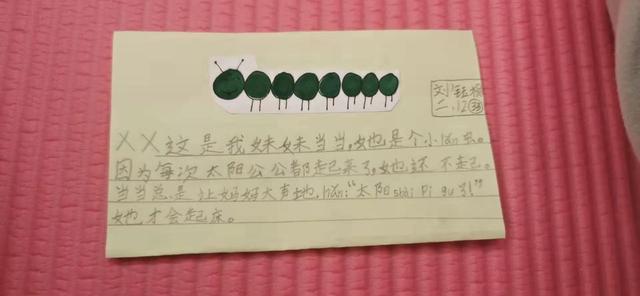 二.12 33
××这是我妹妹当当,她也是个小lǎn虫。
因为每次太阳公公都起来了,她还不起。
当当总是让妈妈大声地hǎn:“太阳shài pì gu了!”
她才会起床。